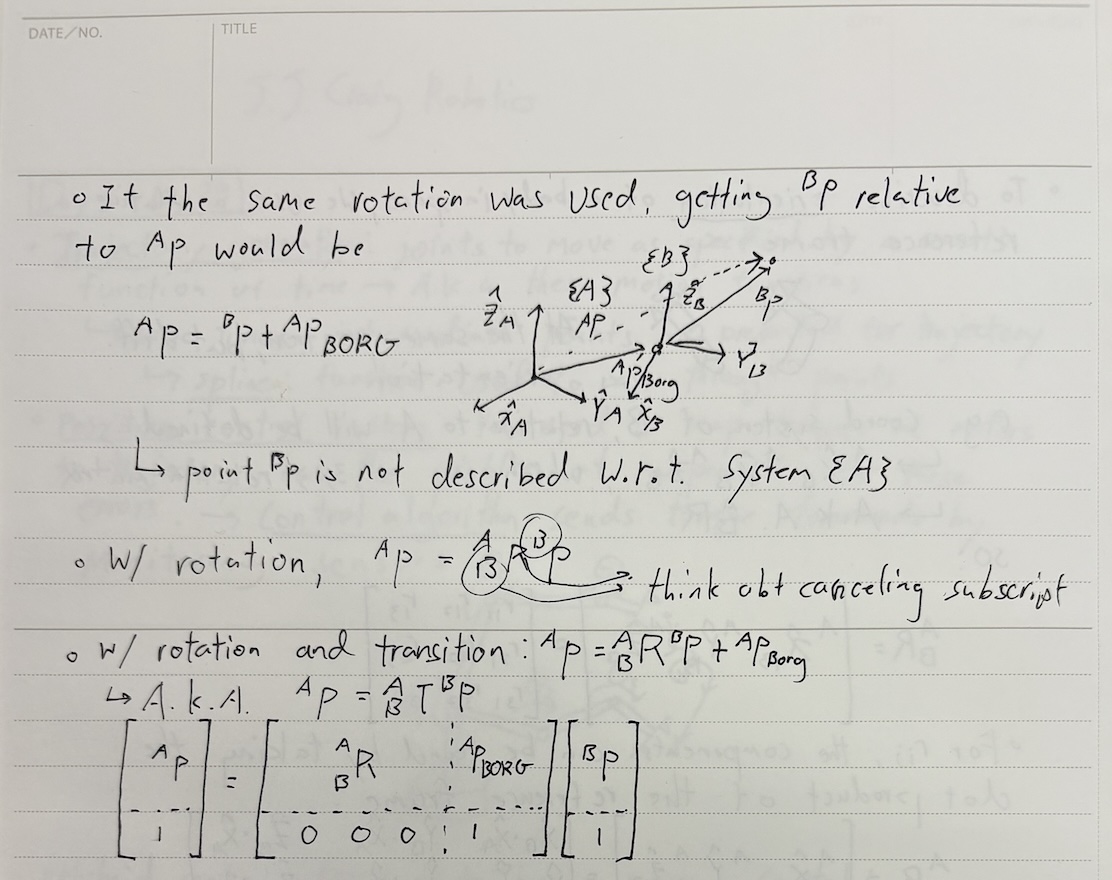 DATE/NO.
TITLE
o If the same rotation was used, getting ᴮP relative
to ᴬP would be
ᴬP = ᴮP + ᴬP_BORG
{A}
{B}
Ẑ_A
X̂_A
Ŷ_A
ᴬP
ᴬP_Borg
Ẑ_B
Ŷ_B
X̂_B
ᴮP
↳ point ᴮP is not described w.r.t. system {A}
o w/ rotation, ᴬP = ᴬ_B R ᴮP → think abt canceling subscript
o w/ rotation and transition: ᴬP = ᴬ_B R ᴮP + ᴬP_Borg
↳ A.k.A. ᴬP = ᴬ_B T ᴮP
[ᴬP] = [ᴬ_B R ¦ ᴬP_BORG] [ᴮP]
[1] [0 0 0 ¦ 1] [1]